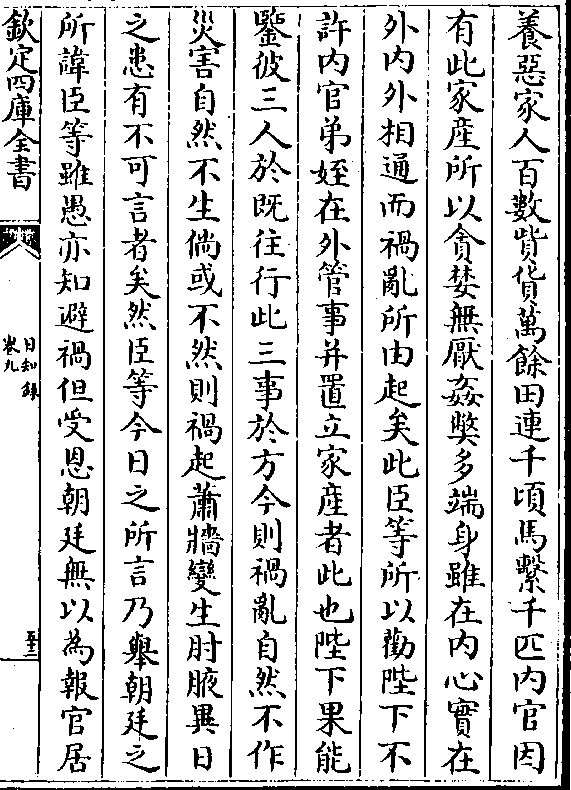 養惡家人百數貲貨萬餘田連千頃馬繫千匹内官因
有此家産所以貪婪無厭姦獘多端身雖在内心實在
外内外相通而禍亂所由起矣此臣等所以勸陛下不
許内官弟姪在外管事并置立家産者此也陛下果能
鑒彼三人於既往行此三事於方今則禍亂自然不作
災害自然不生倘或不然則禍起蕭牆變生肘腋異日
之患有不可言者矣然臣等今日之所言乃舉朝廷之
所諱臣等雖愚亦知避禍但受恩朝廷無以為報官居
欽定四庫全書
日知録
卷九